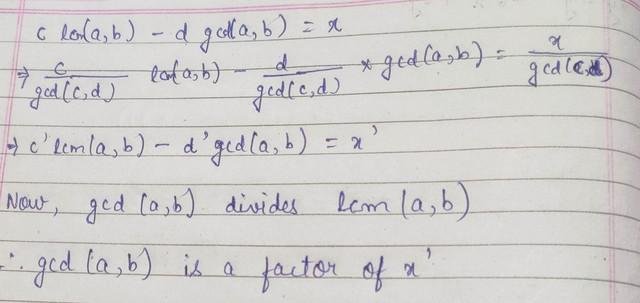 c lcm(a,b) - d gcd(a,b) = x
⇒ c/gcd(c,d) lcm(a,b) - d/gcd(c,d) * gcd(a,b) = x/gcd(c,d)
⇒ c' lcm(a,b) - d' gcd(a,b) = x'
Now, gcd (a,b) divides lcm (a,b)
∴ gcd (a,b) is a factor of x'